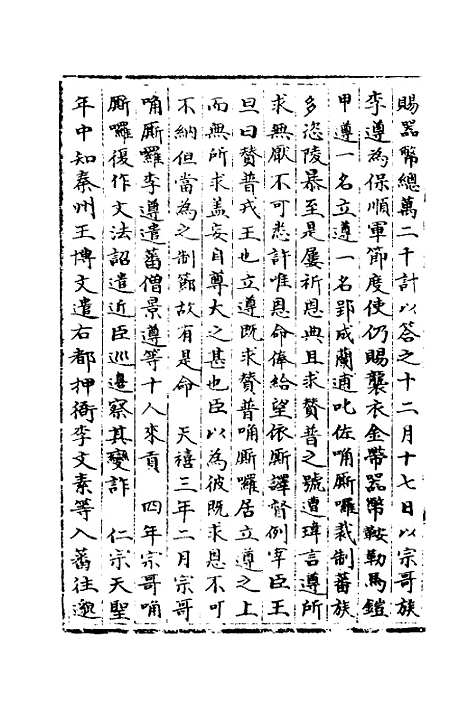 賜器幣總萬二千計以答之十二月十七日以宗哥族
李遵為保順軍節度使仍賜襲衣金帶器幣鞍勒馬鎧
甲遵一名立遵一名郢成蘭逋叱佐唃厮囉裁制蕃族
多恣陵暴至是屢祈恩典且求贊普之號遭瑋言遵所
求無厭不可悉許唯恩命俸給望依厮鐸督例宰臣王
旦曰贊普戎王也立遵既求贊普唃厮囉居立遵之上
而無所求盖妄自尊大之甚也臣以為彼既求恩不可
不納但當為之制節故有是命　天禧三年二月宗哥
唃厮囉李遵遣蕃僧景遵等十人來貢　四年宗哥唃
厮囉復作文法詔遣近臣巡邊察其變詐　仁宗天聖
年中知秦州王博文遣右都押衙李文素等入蕃往邈